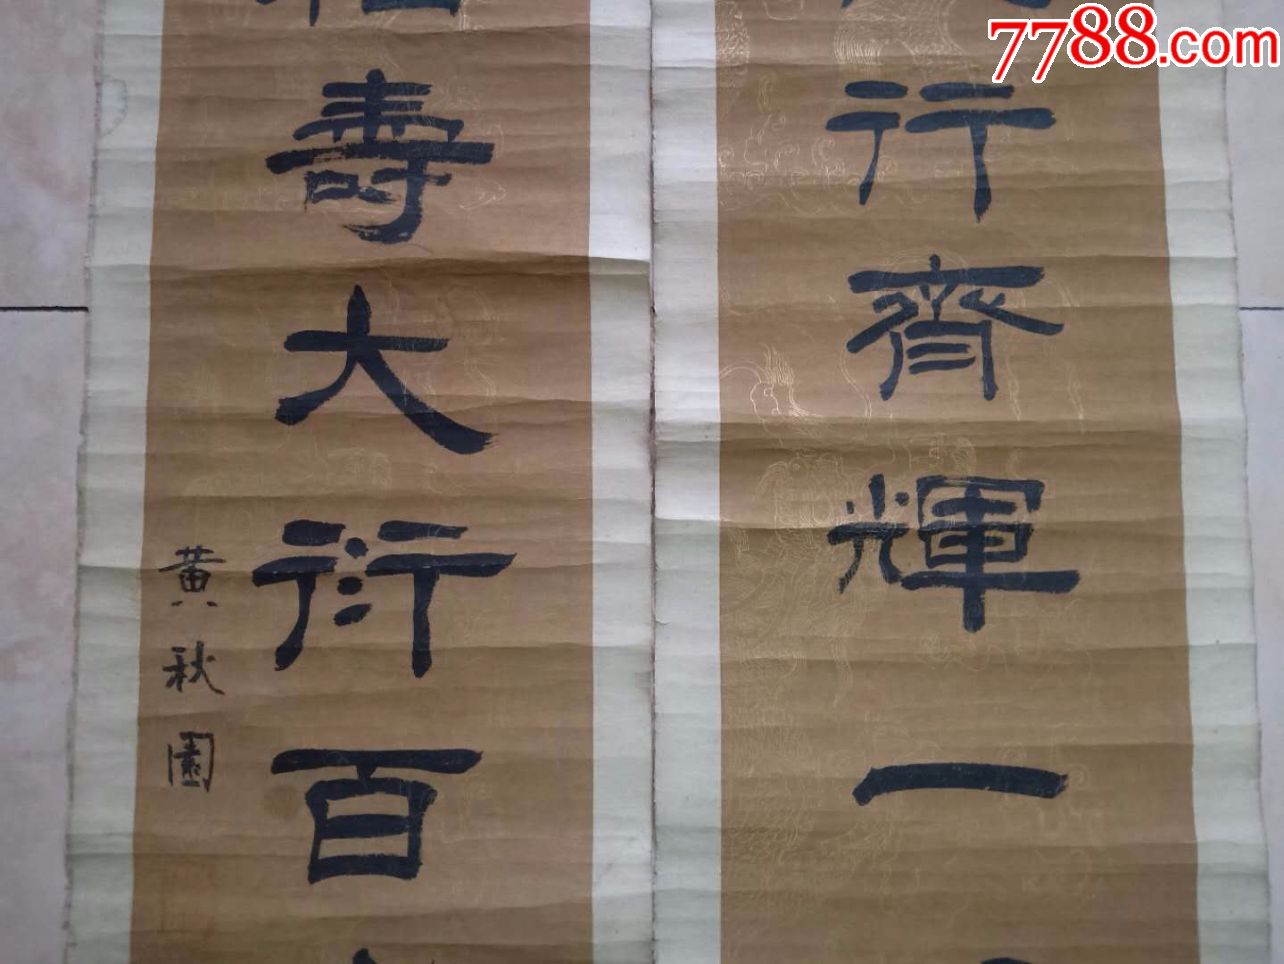 7788.com
行齊輝一
壽大衍百
黄秋園